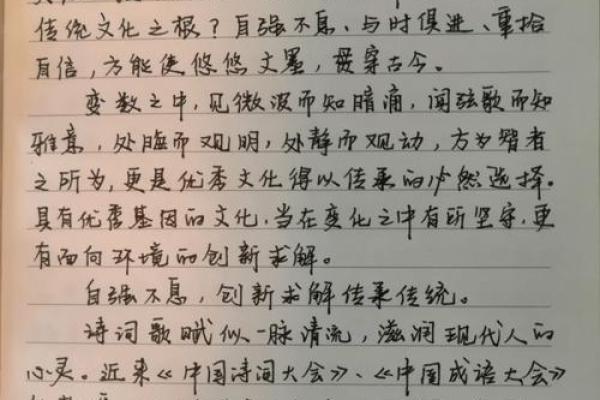 传统文化之根？自强不息、与时俱进、重拾
自信，方能使悠悠文墨，贯穿古今。
变数之中，见微波而知暗涌，闻弦歌而知
雅意，处晦而观明，处静而观动，方为智者
之所为，更是优秀文化得以传承的必然选择。
具有优秀基因的文化，当在变化之中有所坚守，更
有面向环境的创新求解。
自强不息，创新求解传承传统。
诗词歌赋似一脉清流，滋润现代人的
心灵。近来《中国诗词大会》、《中国成语大会》